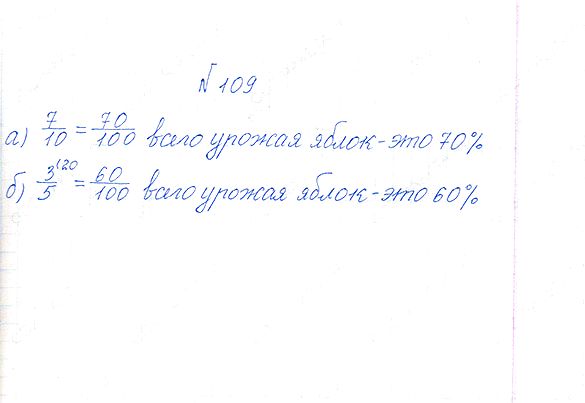 № 109
а) 7/10 = 70/100 всего урожая яблок - это 70%
б) 3^(20/5 = 60/100 всего урожая яблок - это 60%